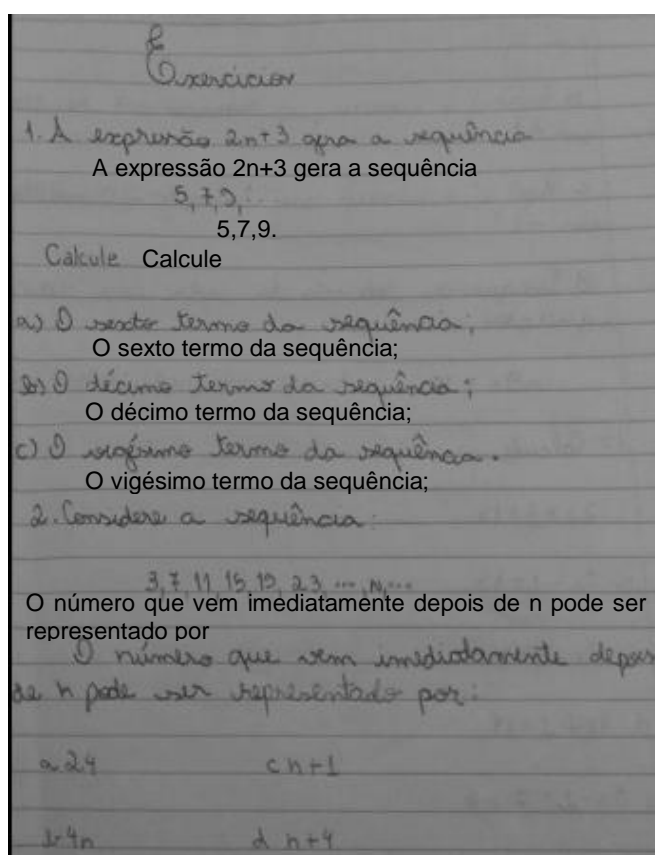 Exercicios
1. A expressão 2n+3 gera a sequência
A expressão 2n+3 gera a sequência
5, 7, 9,
5,7,9.
Calcule Calcule
a) O sexto termo da sequência;
O sexto termo da sequência;
b) O décimo termo da sequência;
O décimo termo da sequência;
c) O vigésimo termo da sequência.
O vigésimo termo da sequência;
2. Considere a sequência:
3, 7, 11, 15, 19, 23, ..., n, ...
O número que vem imediatamente depois de n pode ser
representado por
O número que vem imediatamente depois
de n pode ser representado por:
a 24 c n+1
b 4n d n+4